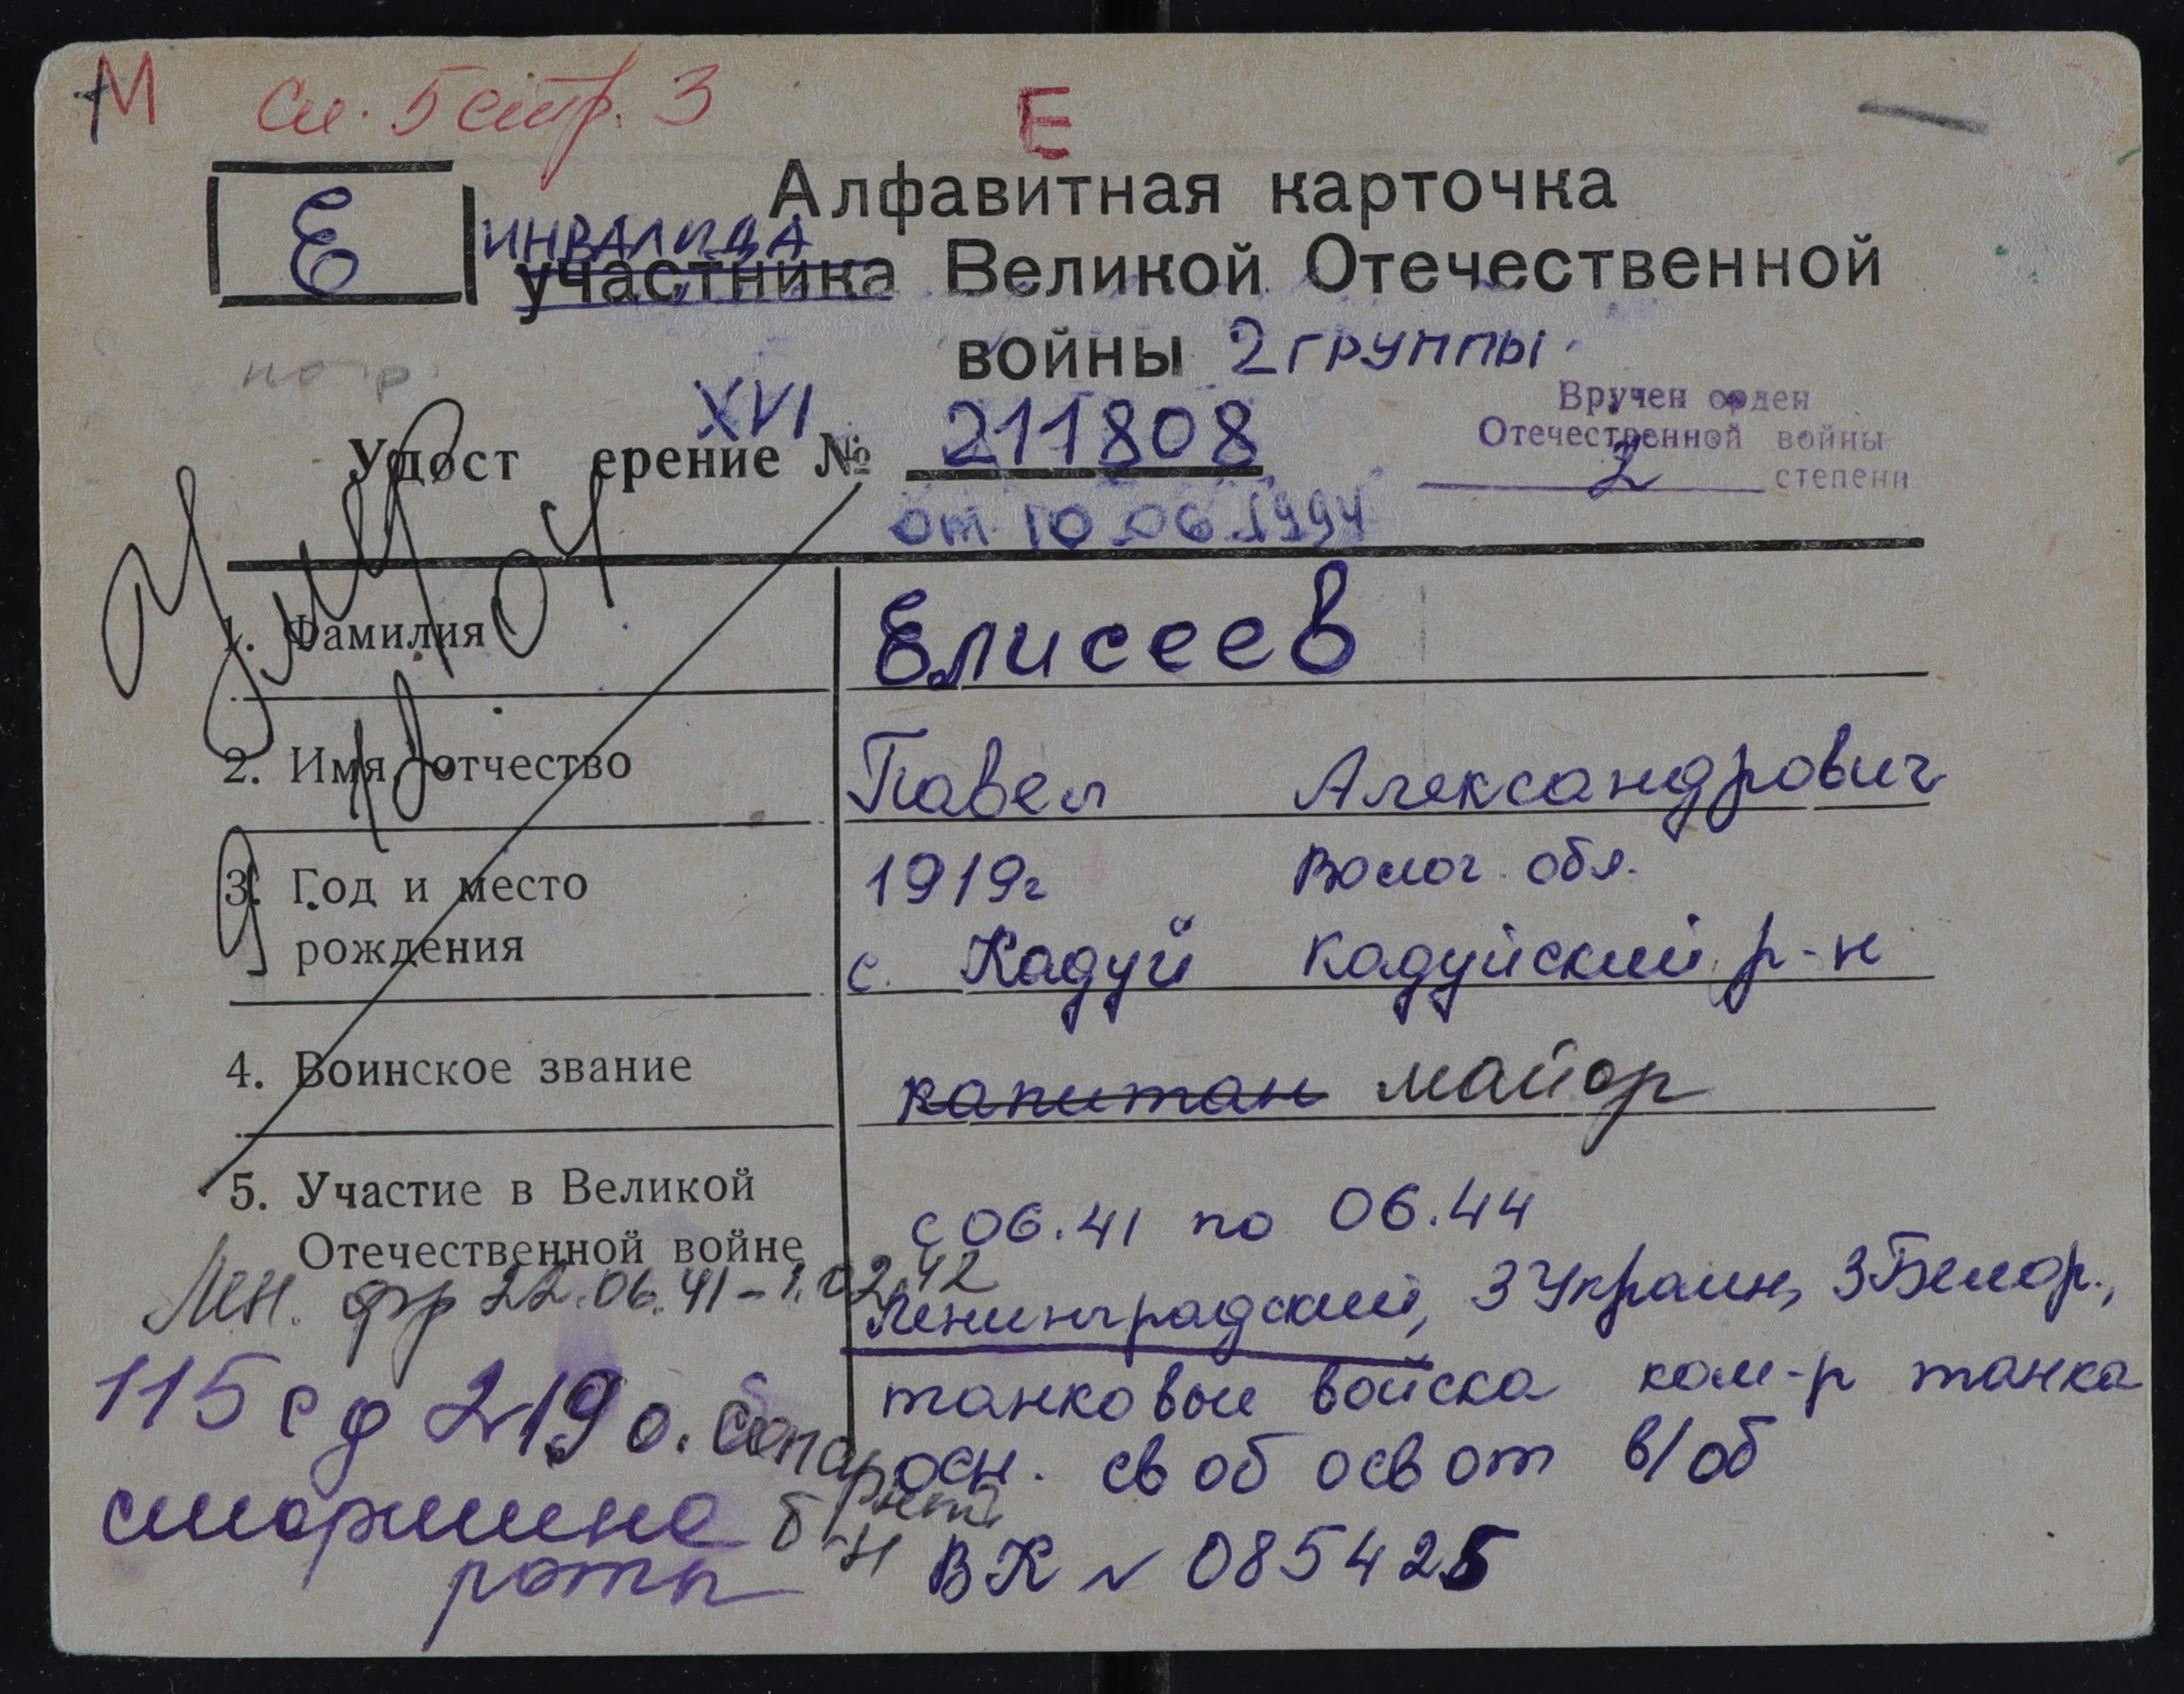 М См. 5 стр. 3 Е
Е
Алфавитная карточка
ИНВАЛИДА
участника Великой Отечественной
войны 2 ГРУППЫ
Вручен орден
Отечественной войны
2 степени
XVI
Удост ерение № 211808
от 10.06.1994
Умер
04
1. Фамилия Елисеев
2. Имя, отчество Павел Александрович
3. Год и место 1919г Волог. обл.
рождения с. Кадуй Кадуйский р-н
4. Воинское звание капитан майор
5. Участие в Великой
Отечественной войне с 06.41 по 06.44
Лен. фр 22.06.41 - 1.02.42
Ленинградский, 3 Украин, 3 Белор.,
танковые войска ком-р танка
115 сд 219 о.
осн. св об осв от в/об
старшина б-н
роты
ВК № 085425